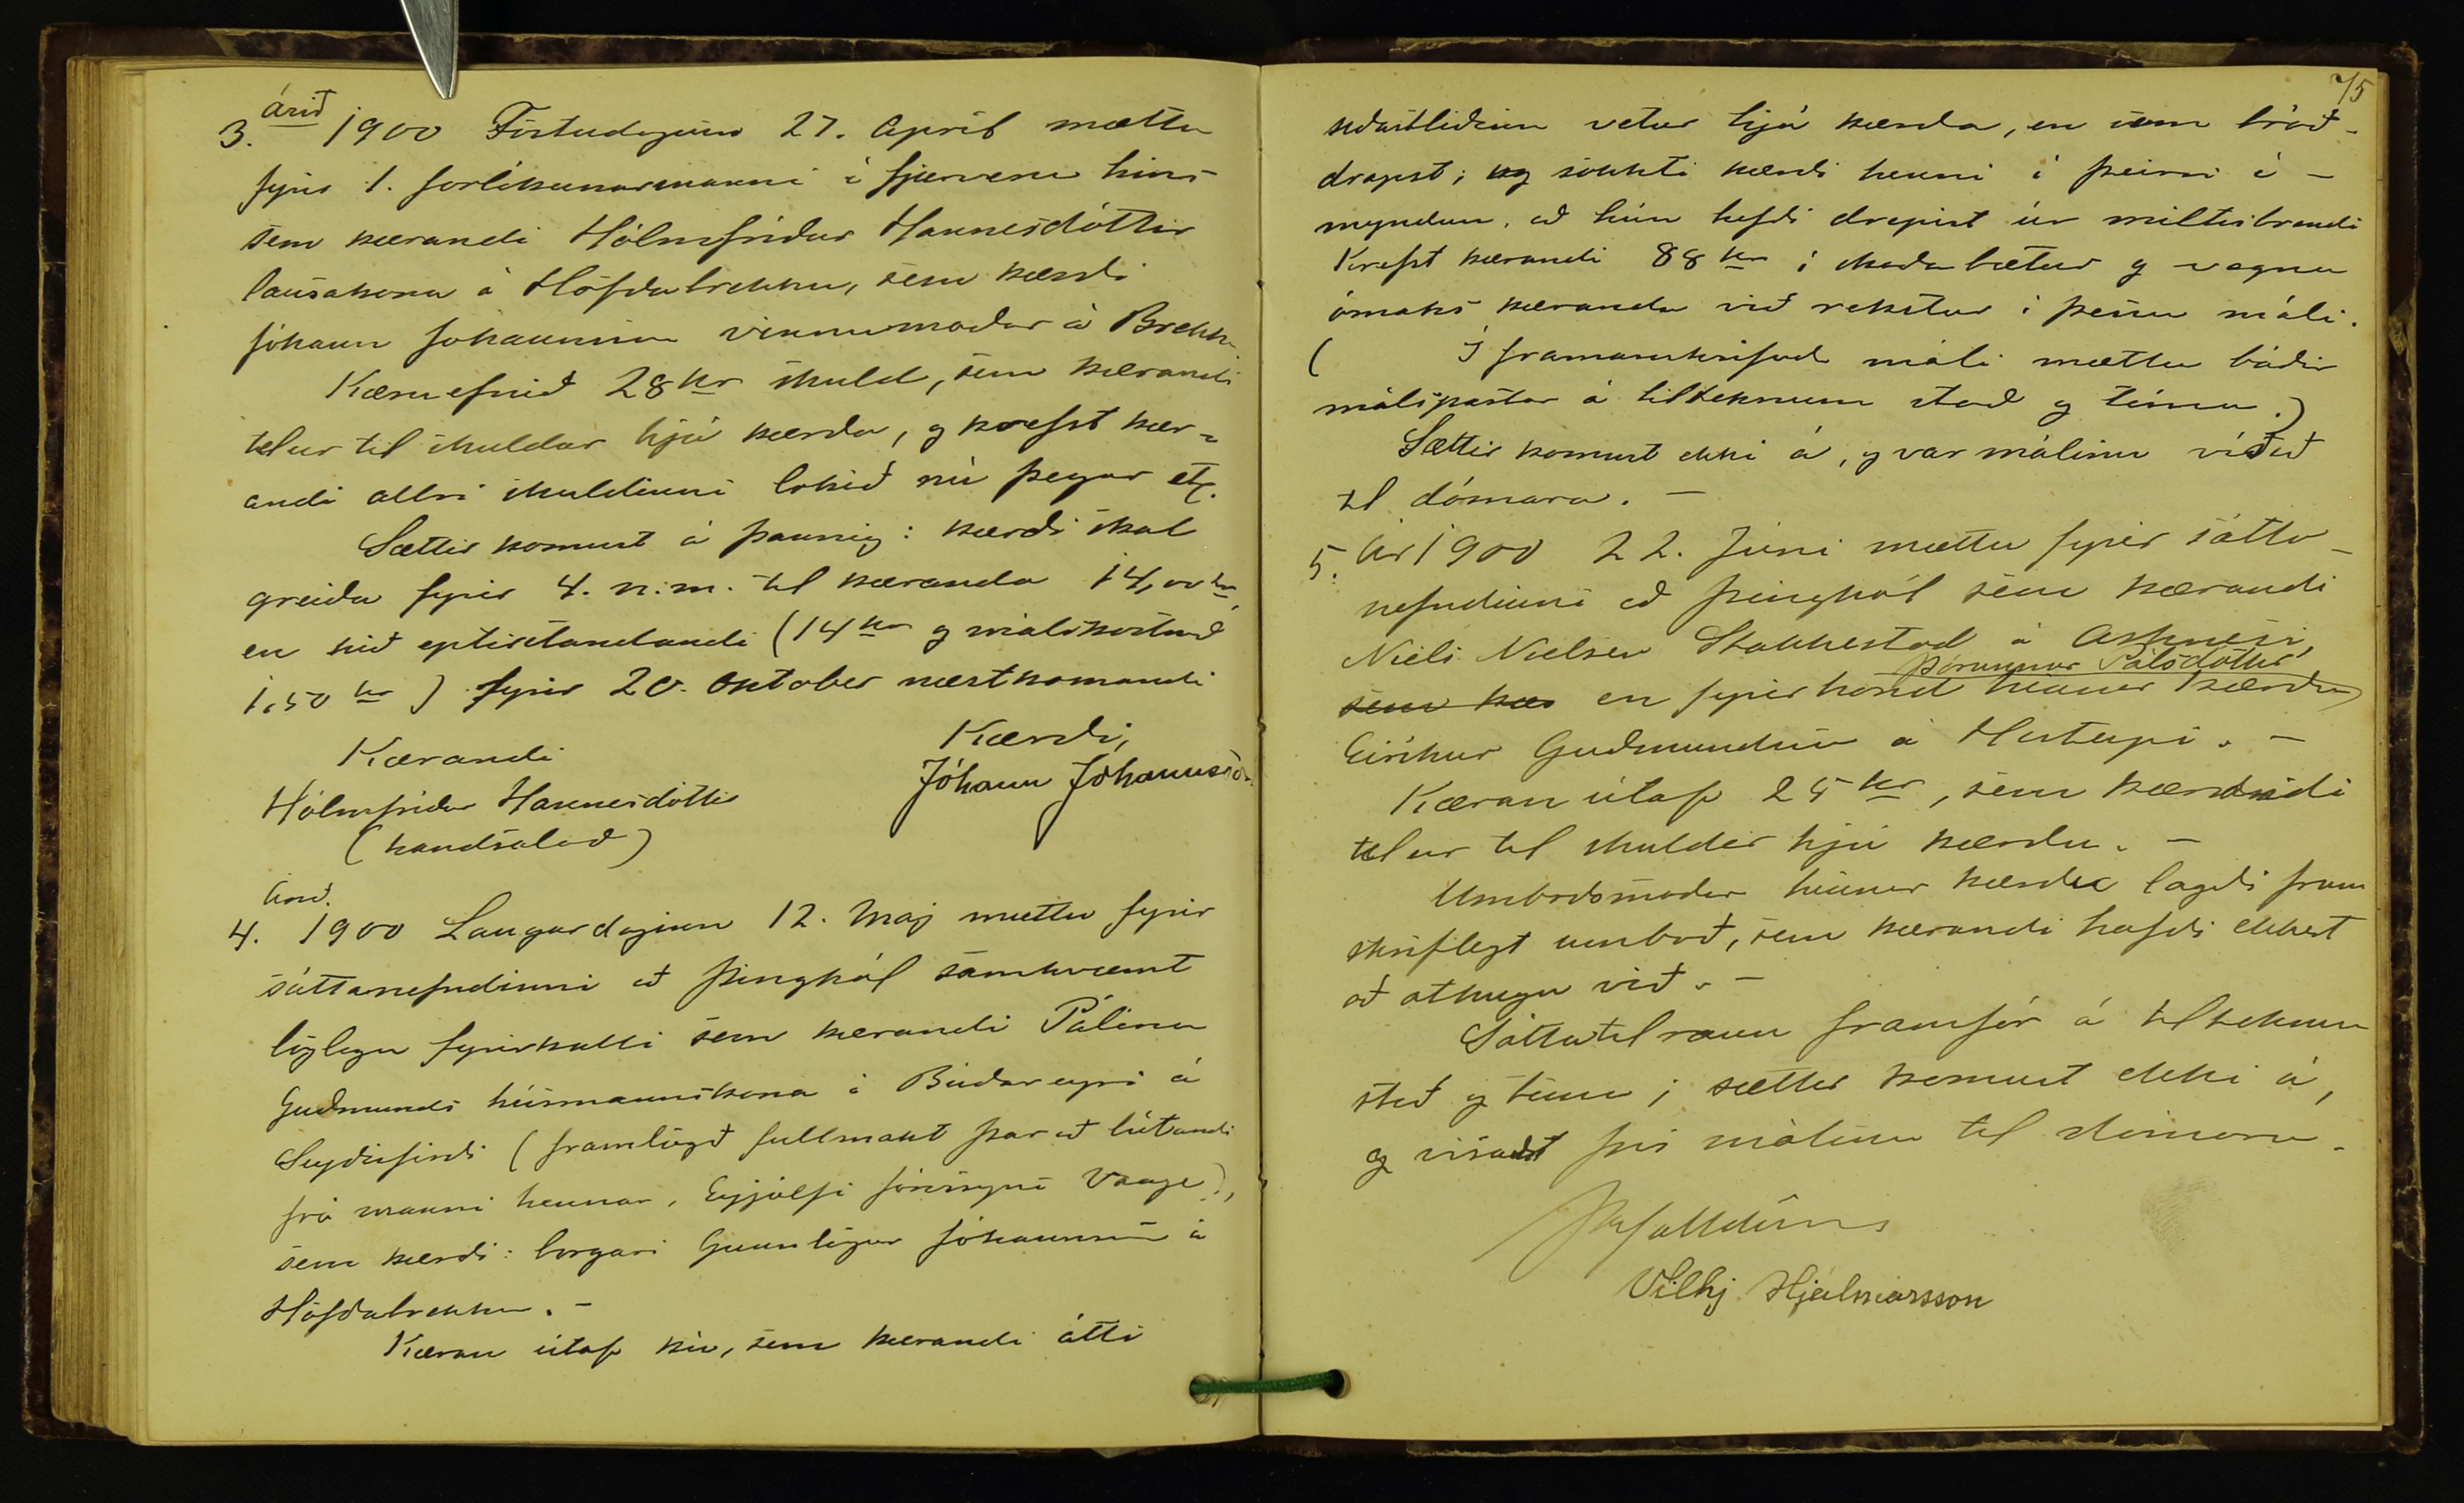 árið
3. 1900 Föstudaginn 27. Apríl mættu
fyrir 1. forlíkunarmanni í fjærveru hins
sem kærandi Hólmfríður Hannesdóttir
lausakona á Höfðabrekku, sem kærði
Jóhann Jóhannsson vinnumaður á Brekku
Kæruefnið 28 kr skuld, sem kærandi
telur til skuldar hjá kærða, og krefst kær-
andi allri skuldinni lokið nú þegar etc.
Sættir komust á þannig: kærði skal
greiða fyrir 4. n.m. til kæranda 14,00 kr,
en hið eptirstandandi (14 kr og málskostnað
1,50 kr) fyrir 20. október næstkomandi
Kærandi
Hólmfríður Hannesdóttir
(handsalað)
Kærði,
Jóhann Jóhannsson
Árið.
4. 1900 Laugardaginn 12. Maj mættu fyrir
sáttanefndinni að Þinghól samkvæmt
löglegu fyrirkalli sem kærandi Pálína
Guðmunds húsmannskona á Búðareyri á
Seyðisfirði (framlögð fullmakt þar að lútandi
frá manni hennar, Eyjólfi Jónssyni Vaage),
sem kærði: borgari Gunnlögur Jóhannsson á
Höfðabrekku. -
Kæran útaf kú, sem kærandi átti
75
síðastliðinn vetur hjá kærða, en sem bráð-
drapst; og sökkti kærði henni í þeirri í-
myndun, að hún hefði drepist úr miltisbrandi
Krefst kærandi 88 kr í skaðabætur og vegna
ómaks kæranda við rekstur í þessu máli.
( Í framanskrifuðu máli mættu báðir
málspartar á tilteknum stað og tíma.)
Sættir komust ekki á, og var málinu vísað
til dómara. -
5. Ár 1900 22. Júní mættu fyrir sátta-
nefndinni að Þinghól sem kærandi
Niels Nielsen Stakkestad á Asknesi,
Þórunnar Pálsdóttur
sem kær en fyrir hönd hinnar kærðu
Eiríkur Guðmundsson á Hesteyri. -
Kæran útaf 25 kr, sem kærandi
telur til skuldar hjá kærðu. -
Umboðsmaður hinnar kærðu lagði fram
skriflegt umboð, sem kærandi hafði ekkert
að athuga við. -
Sáttatilraun framfór á tilteknum
stað og tíma; sættir komust ekki á,
og vísaðist því málinu til dómara.
Vilhj Hjálmarsson